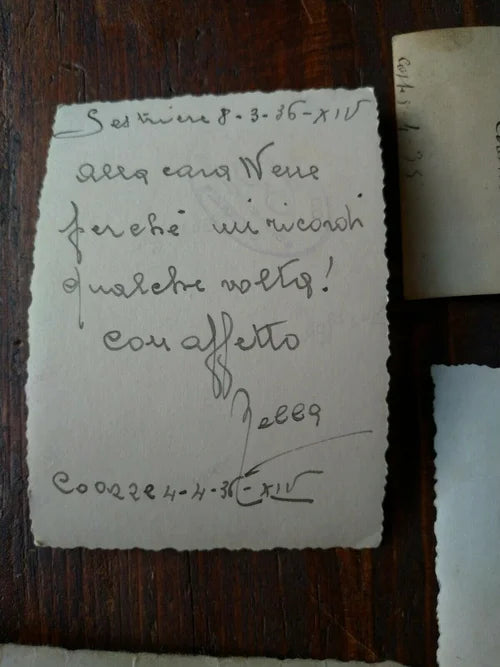 Sestriere 8-3-36-XIV
alla cara Nene
perché mi ricordi
qualche volta!
con affetto
Coazze 4-4-36-XIV